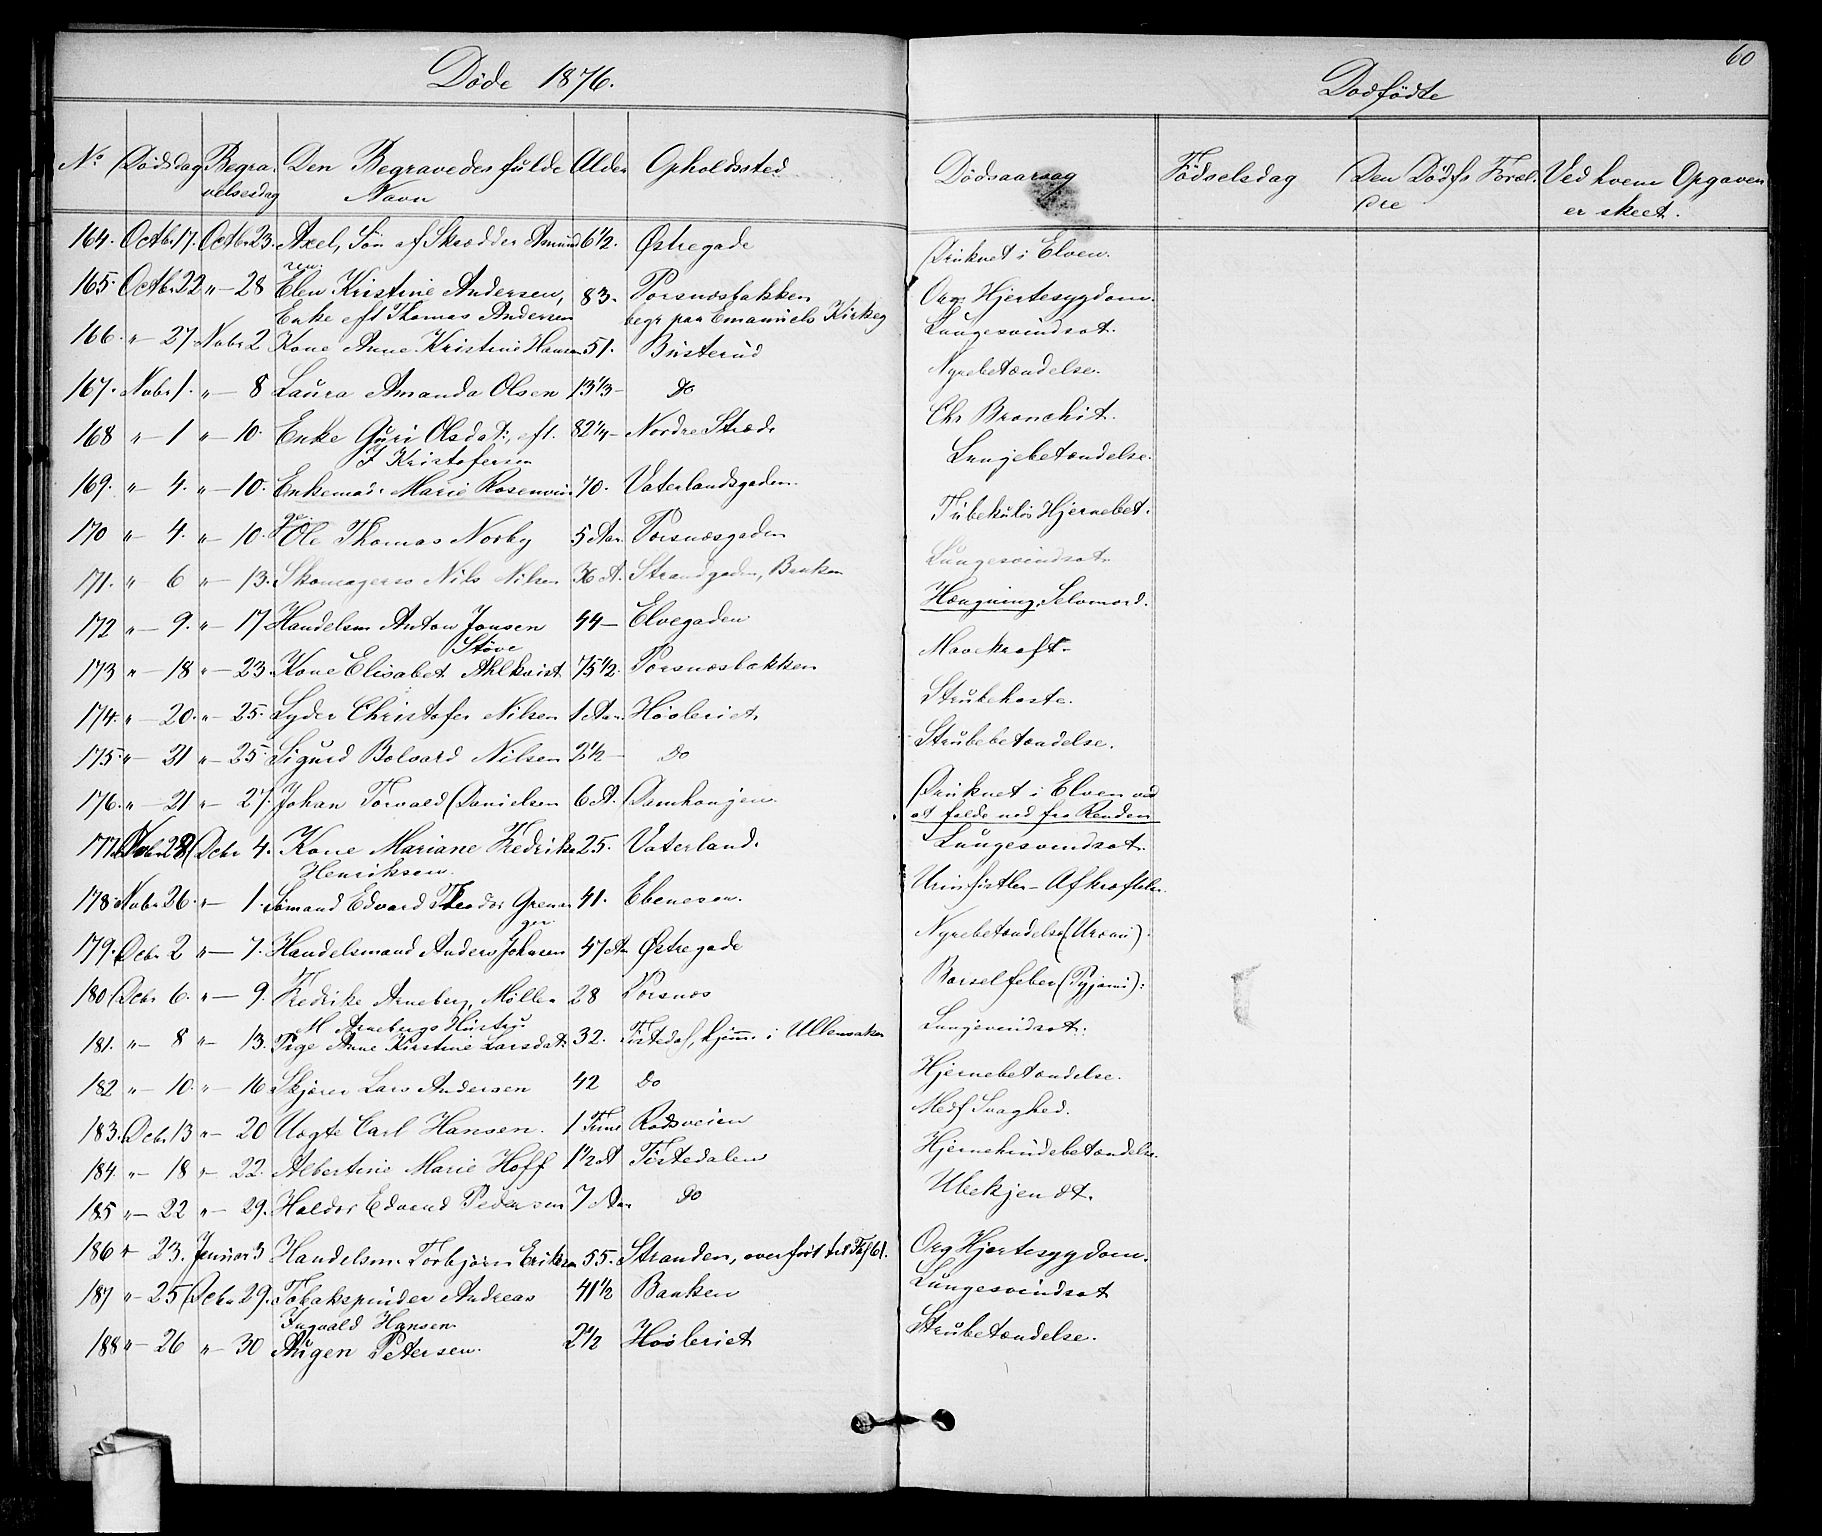 Døde 1876.
60
Dødfødte
No Dødsdag Begravelsesdag Den Begravedes fulde Navn Alder Opholdssted Dødsaarsag Fødselsdag Den Dødfs Forældre Ved hvem Opgaven er skeet.
164. Octbr 17. Octbr 23. Axel, Søn af Skrædder Amundsen. 6 1/2. Østregade Druknet i Elven.
165. Octbr 22 " - 28 Elen Kristine Andersen, 83. Porsnæsbakken Org. Hjertesygdom.
Enke eft Thomas Andersen begr paa Emanuels Kirkeg
166. " - 27 Novbr 2 Kone Anne Kristine Hansen 51. Busterud Lungesvindsot.
167. Novbr 1. " - 8 Laura Amanda Olsen 13 1/3 - Do Nyrebetændelse.
168 " - 1 " - 10. Enke Guri Olsdat:, eft. 82 1/4 - Nordre Stræde Chr Bronchit.
J Kristofersen
169. " - 4. " - 10. Enkemad: Marie Rosenvinge 70. Vaterlandsgaden. Lungebetændelse.
170 " - 4. " - 10. Ole Thomas Norby 5 Aar Porsnæsgaden Tuberkuløs Hjernebet.
171. " - 6 " - 13. Skomagersv Nils Nilsen 36 A. Strandgaden, Banken Lungesvindsot.
172 " - 9. " - 17 Handelsm Anton Jonsen 44 - Elvegaden Hængning. Selvmord.
Støve
173 " - 18 " - 23. Kone Elisabet Ahlkvist 75 1/2. Porsnæsbakken Mavekræft.
174. " - 20. " - 25. Lyder Christofer Nilsen 1 Aar. Hövleriet. Strubehoste.
175. " - 21 " - 25. Sigurd Bolvard Nilsen 2 1/2 - Do Strubebetændelse.
176. " - 21 " - 27. Johan Torvald Danielsen 6 A. Damhougen. Druknet i Elven ved
at falde ned fra Renden
177. Novbr 28 Decbr 4. Kone Mariane Fredrikke 25. Vaterland. Lungesvindsot.
Henriksen.
178. Novbr 26. " - 1. Sømand Edvard Theodor Grenager 41. Ebeneser. Urinfistler - Afkræftelse.
179. Decbr 2 " - 7. Handelsmand Anders Johnsen 47 Aar Østregade Nyrebetændelse (Uræmi).
180 Decbr 6. " - 9. Fredrike Arneberg, Møller 28 Porsnæs Barselfeber (Pyjæmi).
M Arnebergs Hustru.
181. " - 8 " - 13. Pige Anne Kirstine Larsdat: 32. Tistedal, hjem i Ullensaker Lungesvindsot.
182 " - 10. " - 16 Skjærer Lars Andersen 42 Do Hjernebetændelse.
183. Decbr 13 " - 20 Uægte Carl Hansen. 1 Time Rødsveien Medf Svaghed.
184. " - 18 " - 22. Albertine Marie Hoff 1 1/2 A Tistedalen Hjernehindebetændelse.
185 " - 22 " - 29. Haldor Edvard Pedersen 7 Aar Do Ubekjendt.
186 " - 23. Januar 3 Handelsm. Torbjörn Eriksen 55. Stranden, overført til Fol 61. Org Hjertesygdom.
187 " - 25 Decbr 29. Tobakspinder Andreas 41 1/2 Banken Lungesvindsot
Ingvald Hansen.
188 " - 26 " - 30 Augen Petersen. 2 1/2 Hövleriet Strubetændelse.